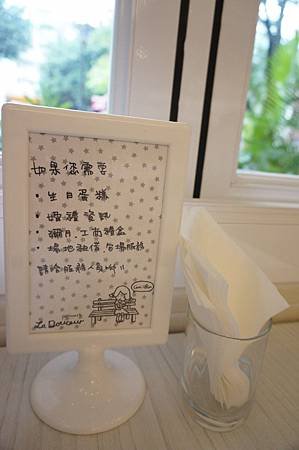 如果您需要
· 生日蛋糕
· 婚禮資訊
· 彌月.工商禮盒
· 場地租借 包場服務
請洽服務人員呦!!
La Douceur